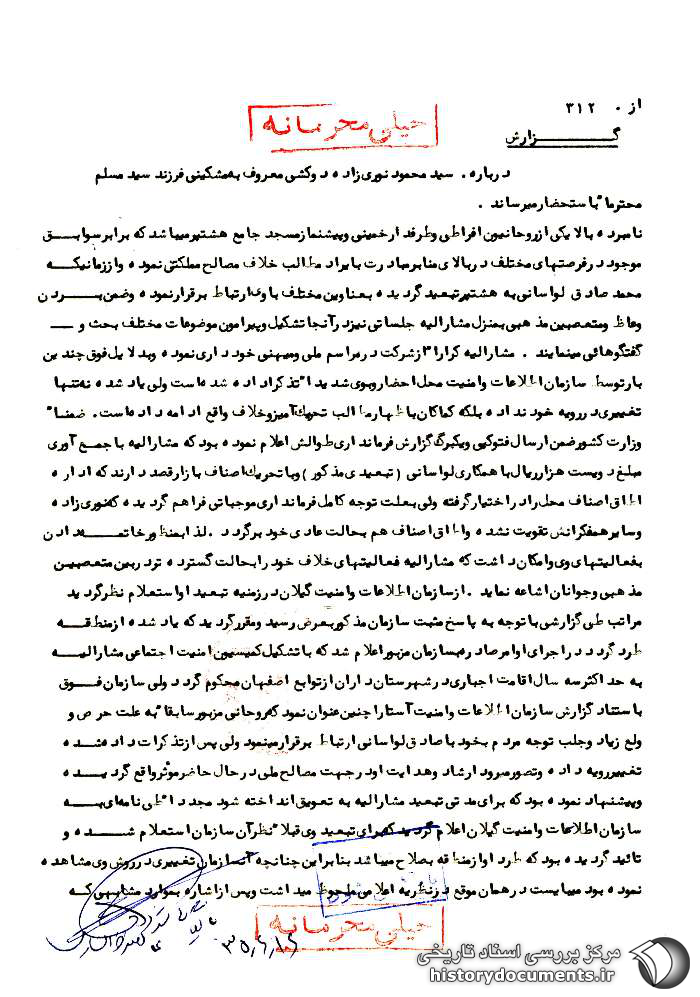 از . ۳۱۲
خیلی محرمانه
گـــزارش
درباره . سید محمود نوری زاده دوکشی معروف به مشکینی فرزند سید مسلم
محترما" باستحضار میرساند .
نامبرده بالا یکی از روحانیون افراطی و طرفدار خمینی و پیشنماز مسجد جامع هشتپر میباشد که برابر سوابق
موجود در فرصتهای مختلف در بالای منابر مبادرت بایراد مطالب خلاف مصالح مملکتی نموده و از زمانیکه
محمد صادق لواسانی به هشتپر تبعید گردیده بعناوین مختلف با وی ارتباط برقرار نموده و ضمن بردن
وعاظ و متعصبین مذهبی بمنزل مشارالیه جلساتی نیز در آنجا تشکیل و پیرامون موضوعات مختلف بحث و
گفتگوهائی مینمایند . مشارالیه کرارا" از شرکت در مراسم ملی و میهنی خودداری نموده و بدلایل فوق چندین
بار توسط سازمان اطلاعات و امنیت محل احضار و بوی شدیدا" تذکر داده شده است ولی یاد شده نه تنها
تغییری در رویه خود نداده بلکه کماکان باظهار مطالب تحریک آمیز و خلاف واقع ادامه داده است . ضمنا"
وزارت کشور ضمن ارسال فتوکپی یکبرگ گزارش فرمانداری طوالش اعلام نموده بود که مشارالیه با جمع آوری
مبلغ دویست هزار ریال با همکاری لواسانی ( تبعیدی مذکور ) و با تحریک اصناف بازار قصد دارند که اداره
اطاق اصناف محل را در اختیار گرفته ولی بعلت توجه کامل فرمانداری موجباتی فراهم گردیده که نوری زاده
و سایر همفکرانش تقویت نشده و اطاق اصناف هم بحالت عادی خود برگردد . لذا بمنظور خاتمه دادن
بفعالیتهای وی و امکان داشت که مشارالیه فعالیتهای خلاف خود را بحالت گسترده تر در بین متعصبین
مذهبی و جوانان اشاعه نماید . از سازمان اطلاعات و امنیت گیلان در زمینه تبعید او استعلام نظر گردید
مراتب طی گزارشی با توجه به پاسخ مثبت سازمان مذکور بعرض رسید و مقرر گردید که یاد شده از منطقه
طرد گردد در اجرای اوامر صادره بسازمان مزبور اعلام شد که با تشکیل کمیسیون امنیت اجتماعی مشارالیه
به حداکثر سه سال اقامت اجباری در شهرستان داران از توابع اصفهان محکوم گردد ولی سازمان فوق
باستناد گزارش سازمان اطلاعات و امنیت آستارا چنین عنوان نمود که روحانی مزبور سابقا" به علت حرص و
ولع زیاد و جلب توجه مردم بخود با صادق لواسانی ارتباط برقرار مینمود ولی پس از تذکرات داده شده
تغییر رویه داده و تصور میرود ارشاد و هدایت او در جهت مصالح ملی در حال حاضر موثر واقع گردیده
و پیشنهاد نموده بود که برای مدتی تبعید مشارالیه به تعویق انداخته شود مجددا" طی نامه ای به
سازمان اطلاعات و امنیت گیلان اعلام گردید که برای تبعید وی قبلا" نظر آن سازمان استعلام شده و
تائید گردیده بود که طرد او از منطقه بصلاح میباشد بنابراین چنانچه آنسازمان تغییری در روش وی مشاهده
نموده بود میبایست در همان موقع در نظریه اعلامی ملحوظ میداشت و پس از اشاره بموارد مشابهی که
خیلی محرمانه
مرکز بررسی اسناد تاریخی
historydocuments.ir